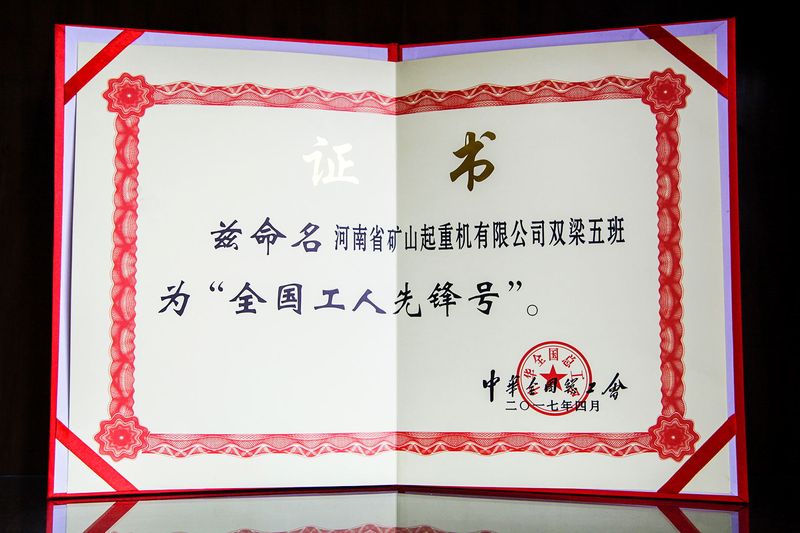 证书
兹命名 河南省矿山起重机有限公司双梁五班
为“全国工人先锋号”。
中华全国总工会
中华全国总工会
二〇一七年四月